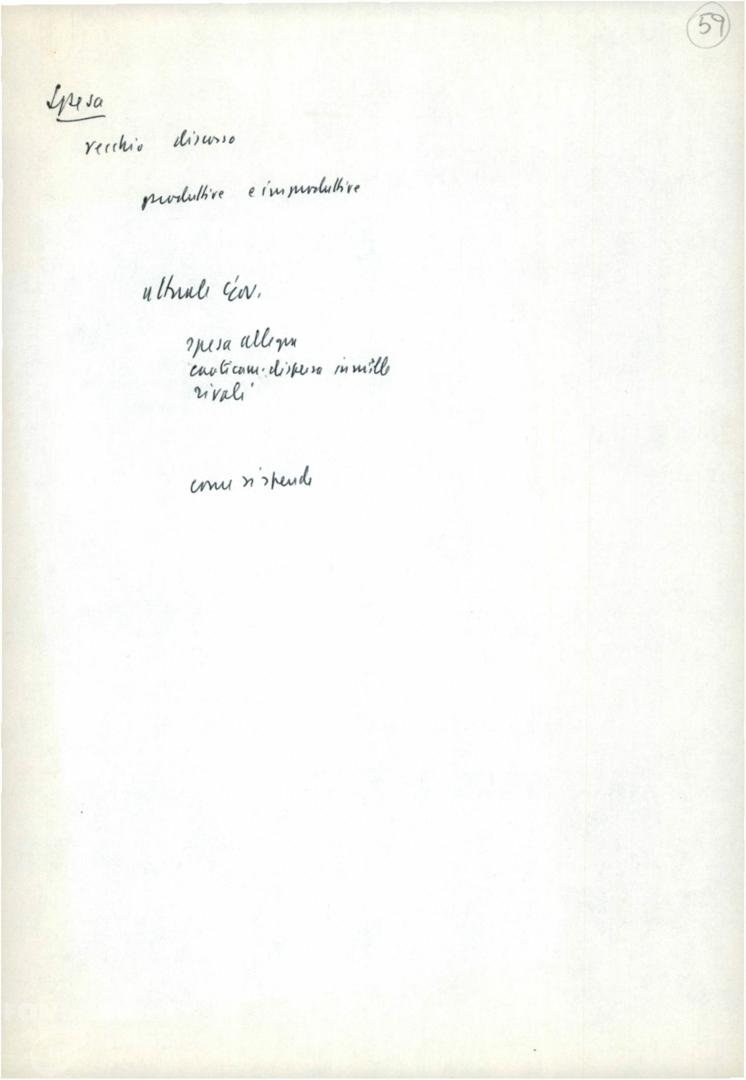 59
Spesa
vecchio discorso
produttive e improduttive
attuale
spesa allegra
dispersa in mille
rivoli
come si spende